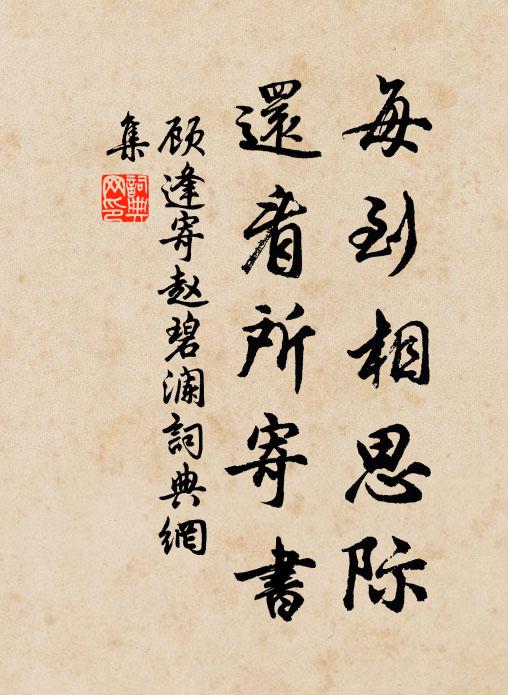 每到相思际
還看所寄書
顾逢寄赵碧澜詞典網
集
詞典
网印